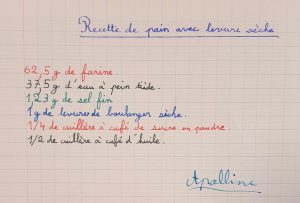 Recette de pain avec levure sèche
62,5 g de farine.
37,5 g d'eau à pein tiède.
1,23 g de sel fin
1 g de levure de boulanger sèche.
1/4 de cuillère à café de sucre en poudre.
1/2 de cuillère à café d'huile.
Apolline